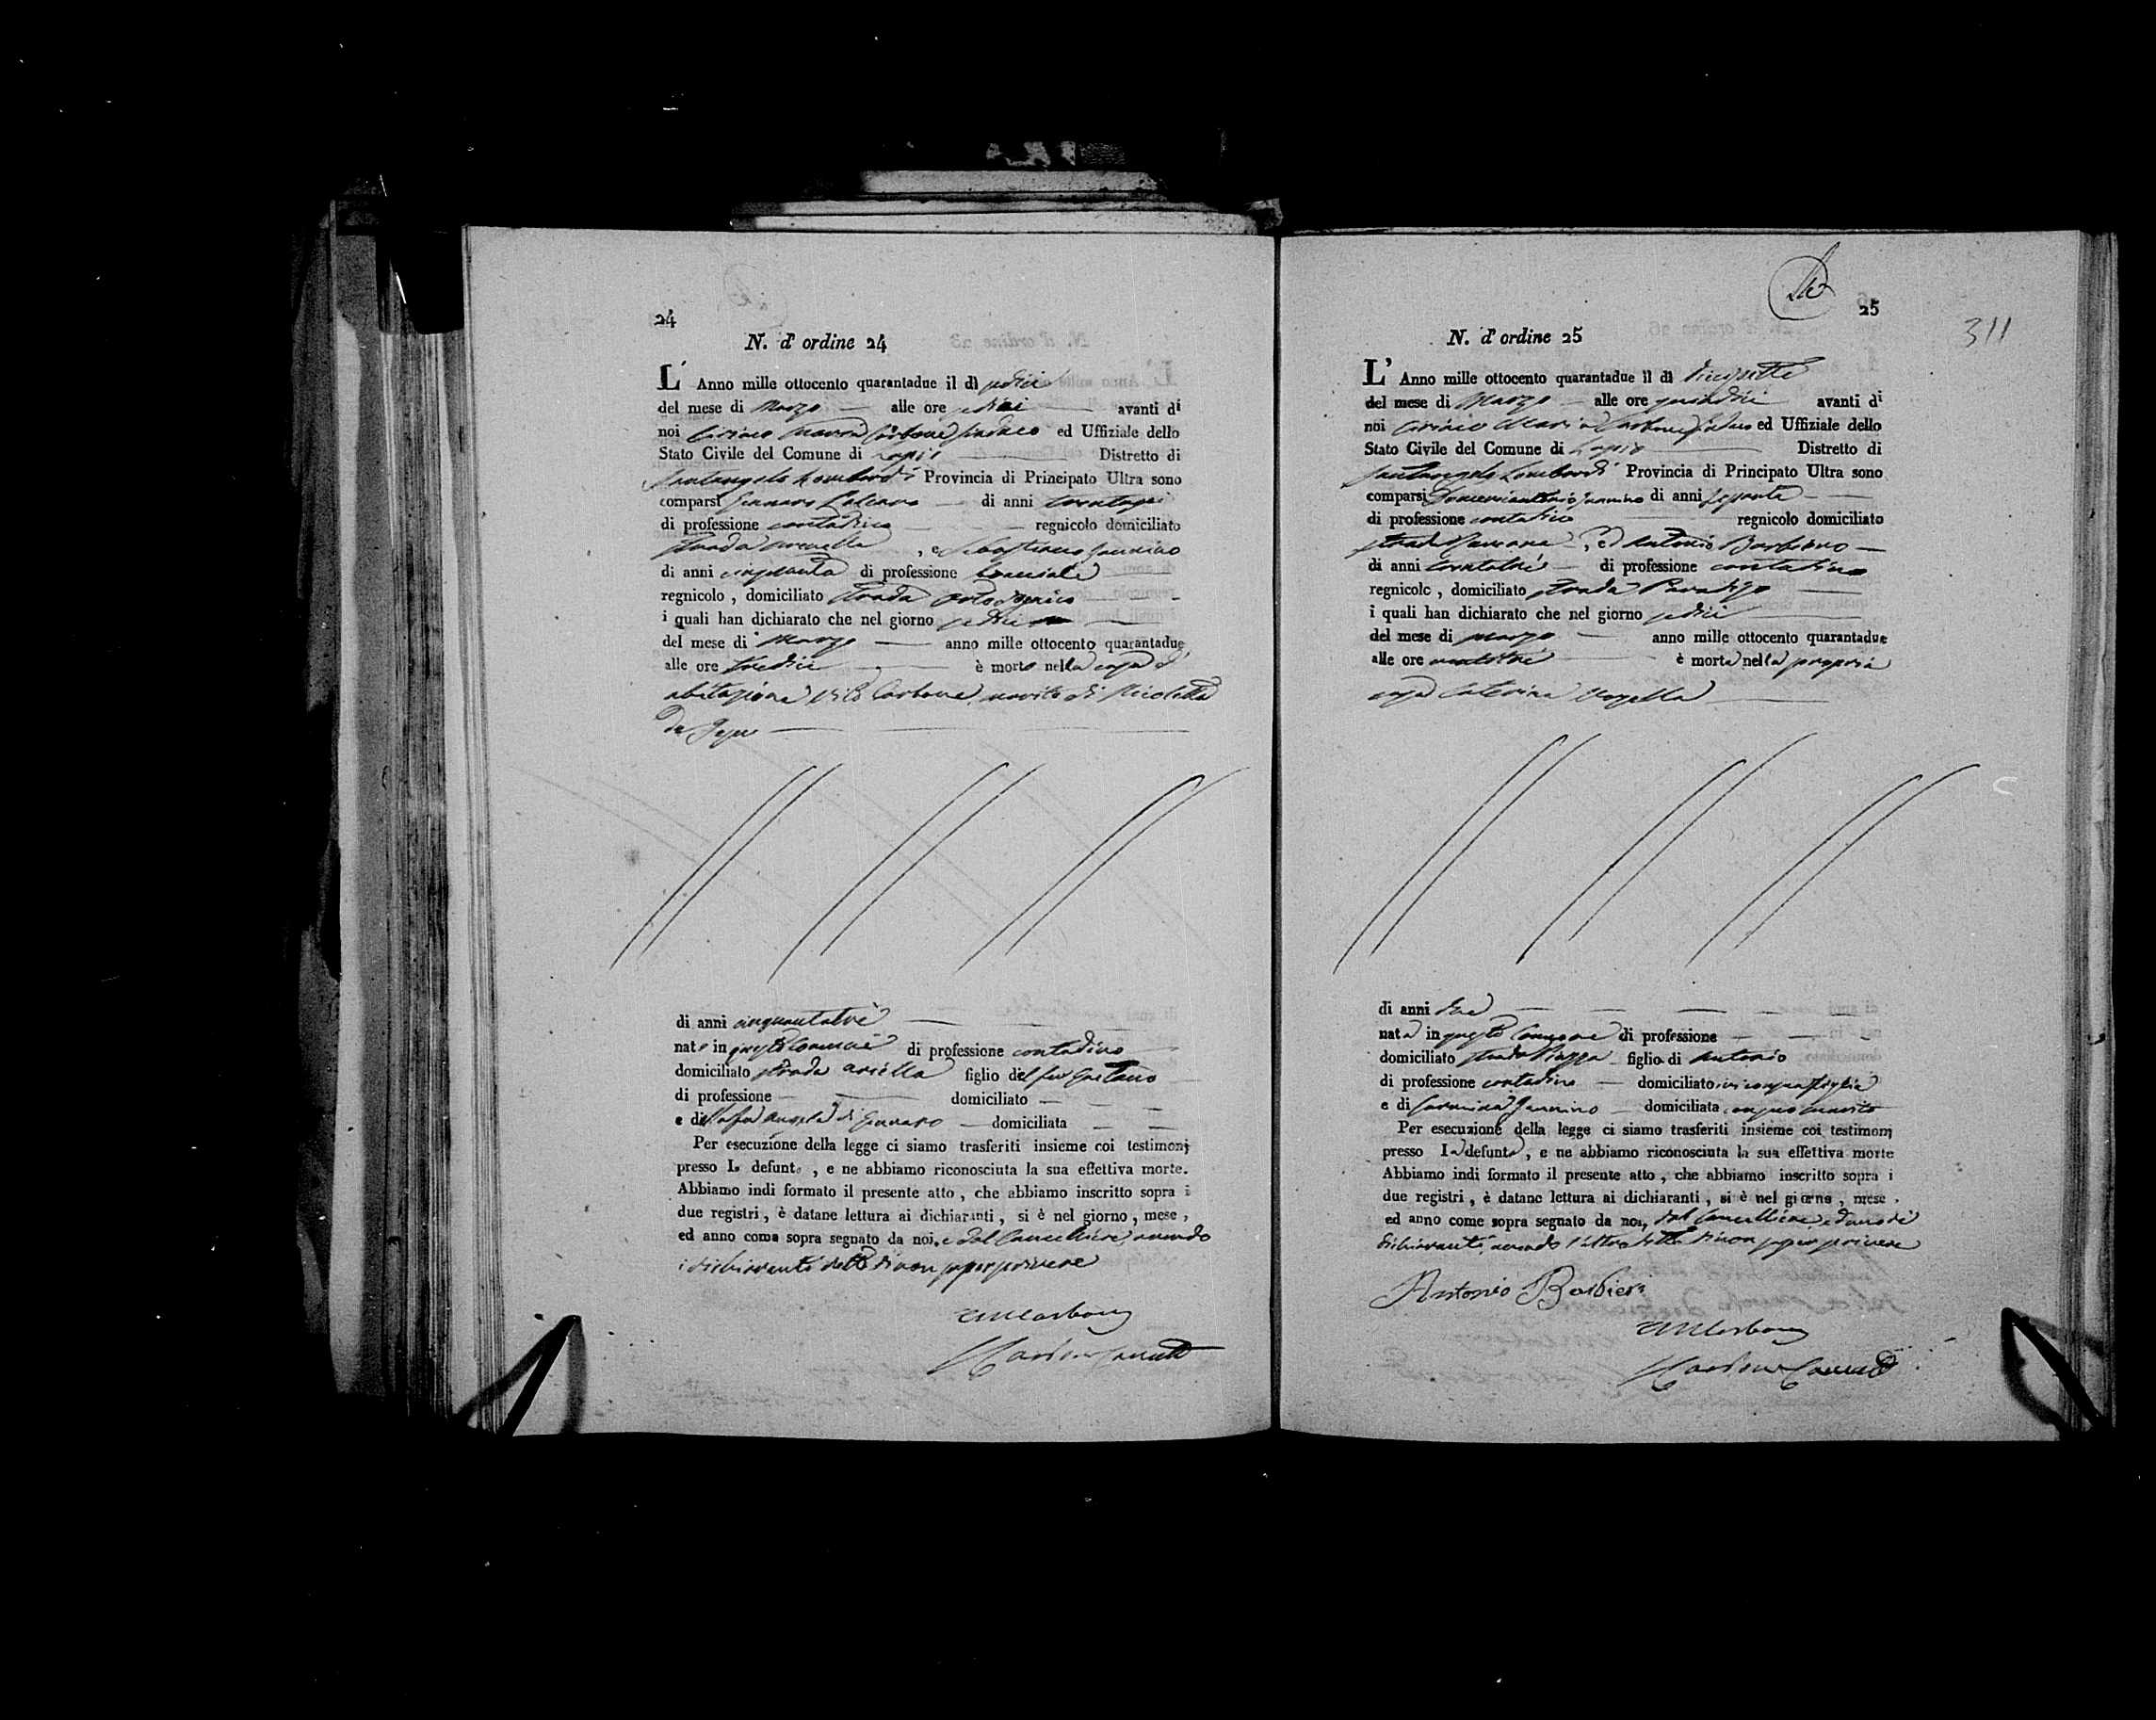 24
N. d' ordine 24
L' Anno mille ottocento quarantadue il dì sedici
del mese di Marzo alle ore sedici avanti di
noi Ciriaco Maria Carbone Sindaco ed Uffiziale dello
Stato Civile del Comune di Lapio Distretto di
Santangelo Lombardi Provincia di Principato Ultra sono
comparsi Gennaro di anni
di professione contadino regnicolo domiciliato
strada , e Sebastiano
di anni cinquanta di professione bracciale
regnicolo , domiciliato strada
i quali han dichiarato che nel giorno sedici
del mese di Marzo anno mille ottocento quarantadue
alle ore tredici è morto nella casa d'
abitazione Vito Carbone marito di Nicoletta
de
di anni cinquantatre
nato in questo Comune di professione contadino
domiciliato strada figlio del fu Gaetano
di professione domiciliato
e della fu Angela di Gennaro domiciliata
Per esecuzione della legge ci siamo trasferiti insieme coi testimonj
presso lo defunto , e ne abbiamo riconosciuta la sua effettiva morte.
Abbiamo indi formato il presente atto , che abbiamo inscritto sopra i
due registri , è datane lettura ai dichiaranti , si è nel giorno , mese ,
ed anno come sopra segnato da noi, e dal Cancelliere avendo
i dichiaranti detto di non saper scrivere
CMCarbone
Carbone
25
311
N. d' ordine 25
L' Anno mille ottocento quarantadue il dì diecisette
del mese di Marzo alle ore quindici avanti di
noi Ciriaco Maria Carbone Sindaco ed Uffiziale dello
Stato Civile del Comune di Lapio Distretto di
Santangelo Lombardi Provincia di Principato Ultra sono
comparsi di anni sessanta
di professione contadino regnicolo domiciliato
strada , ed Antonio Barbiero
di anni di professione contadino
regnicolo , domiciliato strada Paradiso
i quali han dichiarato che nel giorno sedici
del mese di marzo anno mille ottocento quarantadue
alle ore ventitre è morta nella propria
casa Caterina Vozella
di anni due
nata in questo Comune di professione
domiciliato strada Piazza figlio di Antonio
di professione contadino domiciliato ivi con sua figlia
e di Carmina domiciliata con suo marito
Per esecuzione della legge ci siamo trasferiti insieme coi testimonj
presso la defunta , e ne abbiamo riconosciuta la sua effettiva morte
Abbiamo indi formato il presente atto , che abbiamo inscritto sopra i
due registri , è datane lettura ai dichiaranti , si è nel giorno , mese ,
ed anno come sopra segnato da noi, dal Cancelliere e da uno dei
dichiaranti avendo l'altro detto di non saper scrivere
Antonio Barbieri
CMCarbone
Carbone